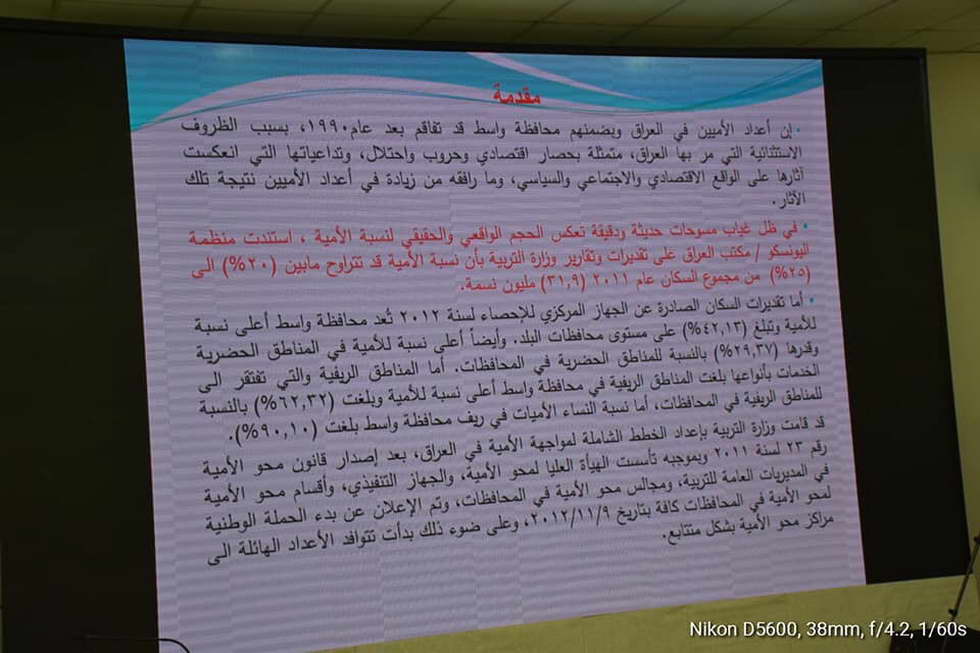 مقدمة
• إن أعداد الأميين في العراق وبضمنهم محافظة واسط قد تفاقم بعد عام ١٩٩٠، بسبب الظروف
الاستثنائية التي مر بها العراق، متمثلة بحصار اقتصادي وحروب واحتلال، وتداعياتها التي انعكست
آثارها على الواقع الاقتصادي والاجتماعي والسياسي، وما رافقه من زيادة في أعداد الأميين نتيجة تلك
الآثار.
• في ظل غياب مسوحات حديثة ودقيقة تعكس الحجم الواقعي والحقيقي لنسبة الأمية ، استندت منظمة
اليونسكو / مكتب العراق على تقديرات وتقارير وزارة التربية بأن نسبة الأمية قد تتراوح مابين (٢٠%) الى
(٢٥%) من مجموع السكان عام ٢٠١١ (٣١,٩) مليون نسمة.
• أما تقديرات السكان الصادرة عن الجهاز المركزي للإحصاء لسنة ٢٠١٢ تُعد محافظة واسط أعلى نسبة
للأمية وتبلغ (٤٢,١٣%) على مستوى محافظات البلد. وأيضاً أعلى نسبة للأمية في المناطق الحضرية
وقدرها (٢٩,٣٧%) بالنسبة للمناطق الحضرية في المحافظات. أما المناطق الريفية والتي تفتقر الى
الخدمات بأنواعها بلغت المناطق الريفية في محافظة واسط أعلى نسبة للأمية وبلغت (٦٢,٣٢%) بالنسبة
للمناطق الريفية في المحافظات، أما نسبة النساء الأميات في ريف محافظة واسط بلغت (٩٠,١٠%).
قد قامت وزارة التربية بإعداد الخطط الشاملة لمواجهة الأمية في العراق، بعد إصدار قانون محو الأمية
رقم ٢٣ لسنة ٢٠١١ وبموجبه تأسست الهيأة العليا لمحو الأمية، والجهاز التنفيذي، وأقسام محو الأمية
في المديريات العامة للتربية، ومجالس محو الأمية في المحافظات، وتم الإعلان عن بدء الحملة الوطنية
لمحو الأمية في المحافظات كافة بتاريخ ٢٠١٢/١١/٩، وعلى ضوء ذلك بدأت تتوافد الأعداد الهائلة الى
مراكز محو الأمية بشكل متتابع.
Nikon D5600, 38mm, f/4.2, 1/60s